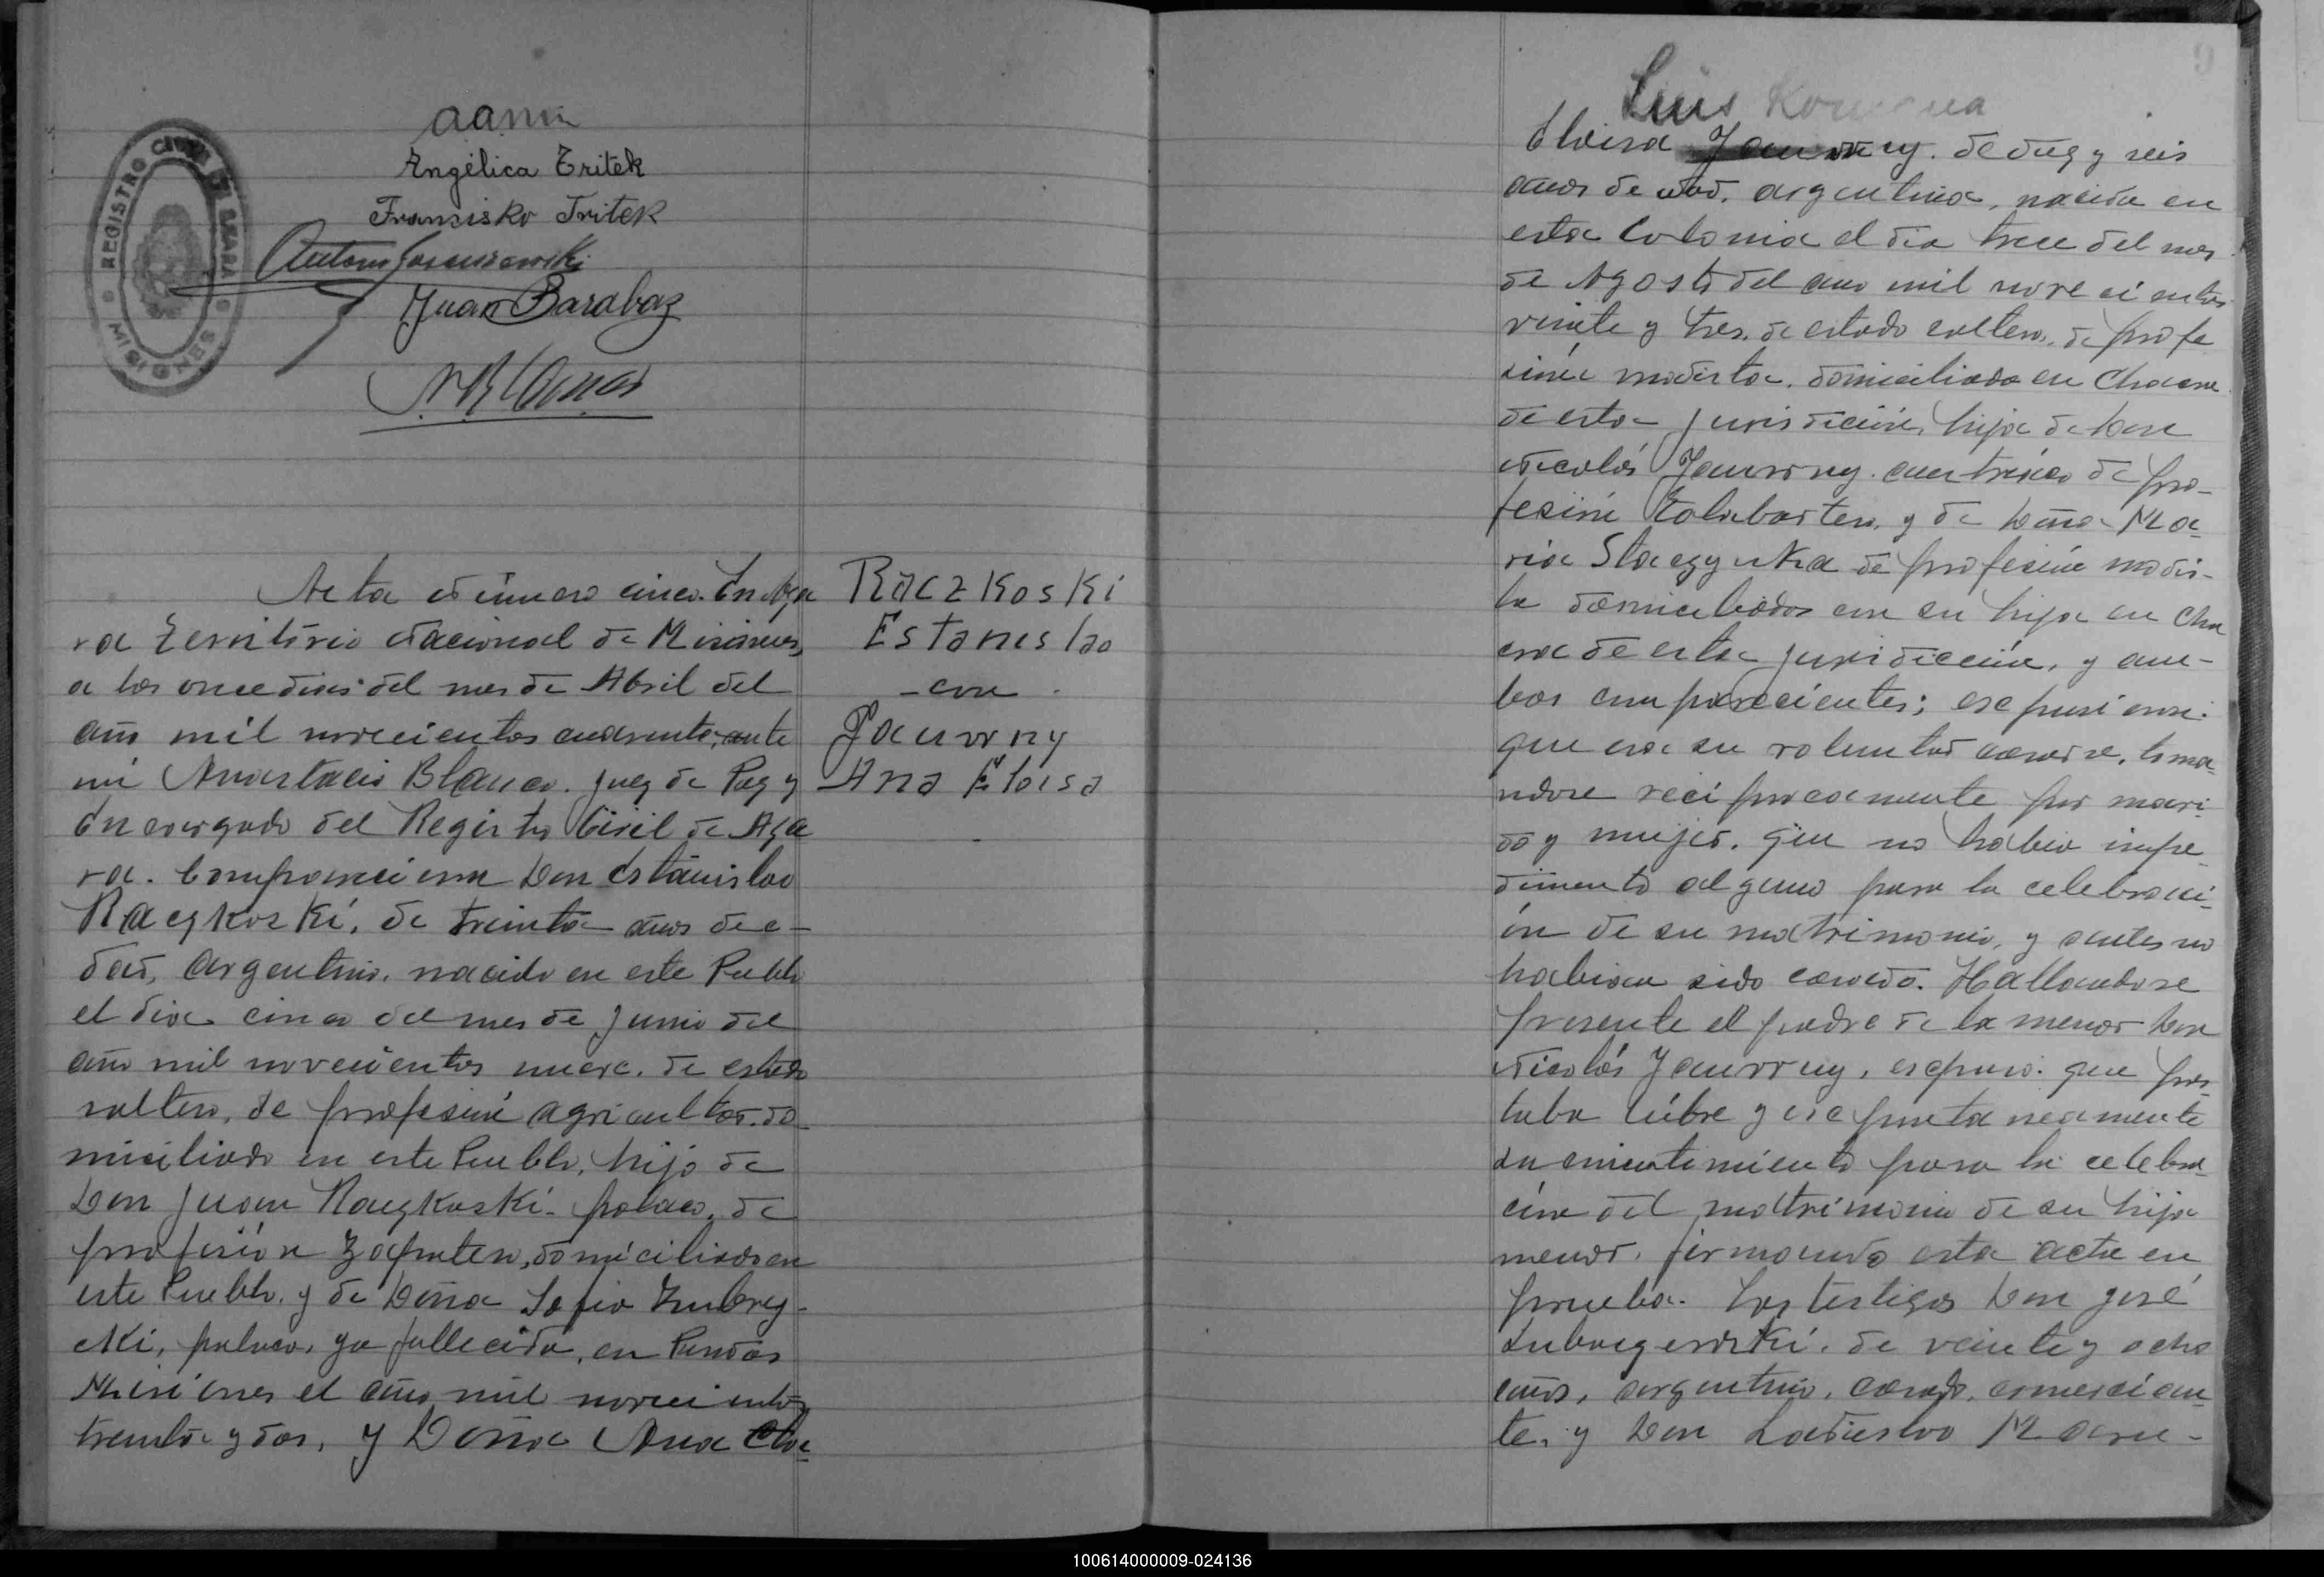 REGISTRO CIVIL DE AZARA
MISIONES
Angélica Tritek
Fransisko Tritek
Juan Barabaz
Acta número cinco. En Aza
ra Territorio Nacional de Misiones,
a los once dias del mes de Abril del
año mil novecientos cuarenta, ante
mi Anastacio Blanco. Juez de Paz y
Encargado del Registro Civil de Aza
ra. Comparecieron Don Estanislao
Raczkoski, de treinta años de e-
dad, argentino, nacido en este Pueblo
el dia cinco del mes de Junio del
año mil novecientos nueve, de estado
soltero, de profesión agricultor, do-
miciliado en este Pueblo, hijo de
Don Juan Raczkoski, polaco, de
profesión Zapatero, domiciliado en
este Pueblo, y de Doña Sofia
ya fallecida, en
Misiones el año mil novecientos
treinta y dos, y Doña Ana Elo-
Raczkoski
Estanislao
-con-
Jauorny
Ana Eloisa
9
Luis
Eloisa Jauorny, de diez y seis
años de edad, argentina, nacida en
esta Colonia el dia trece del mes
de Agosto del año mil novecientos
veinte y tres, de estado soltera, de profe
sión modista, domiciliada en Chacra
de esta jurisdicción, hija de Don
Nicolás Jauorny, austriaco de pro-
fesión Talabartero, y de Doña Ma-
ria de profesión modis-
ta domiciliados con su hija en Cha
cra de esta jurisdicción, y am-
bos comparecientes; expusieron:
que era su voluntad casarse, toma-
ndose reciprocamente por mari-
do y mujer, que no habia impe-
dimento alguno para la celebraci-
ón de su matrimonio, y antes no
habian sido casado. Hallandose
presente el padre de la menor Don
Nicolás Jauorny, expuso: que pres
taba libre y espontaneamente
su consentimiento para la celebra
ción del matrimonio de su hija
menor, firmando esta acta en
prueba. Los testigos Don José
de veinte y ocho
años, argentino, casado, comercian-
te, y Don Ladislao